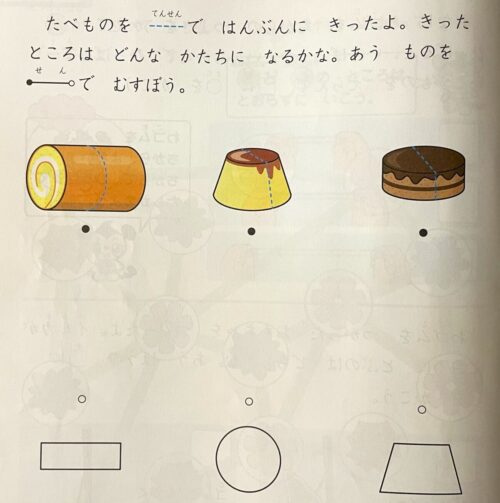 てんせん
たべものを -----で はんぶんに きったよ。きった
ところは どんな かたちに なるかな。あう ものを
せん
●—○で むすぼう。